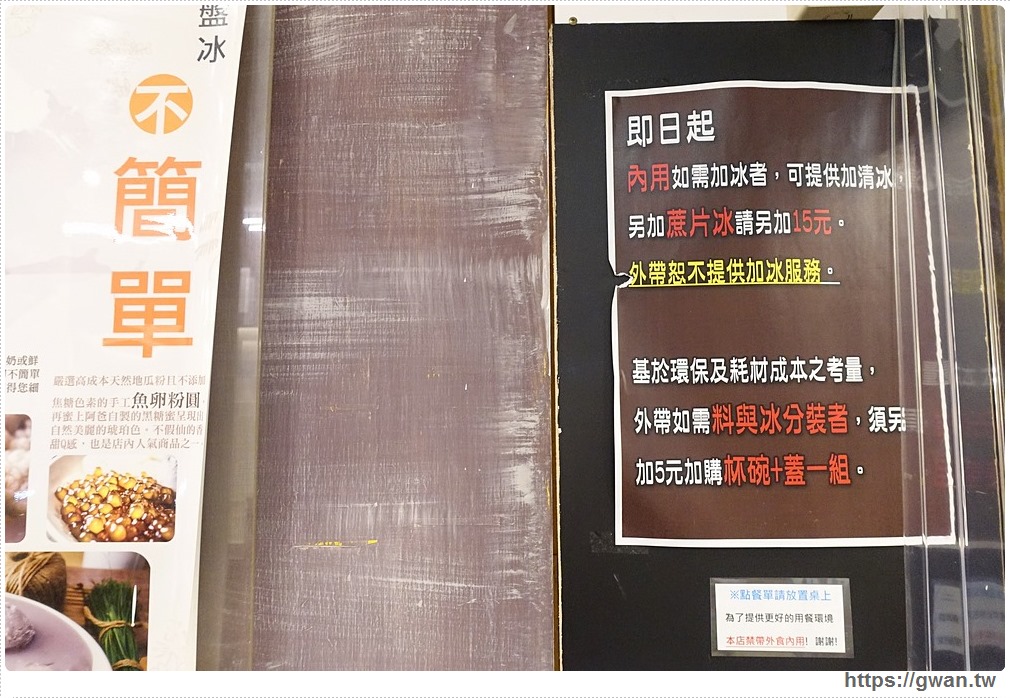 盤冰
不簡單
奶或鮮
不簡單
得您細
嚴選高成本天然地瓜粉且不添加
焦糖色素的手工魚卵粉圓
再蜜上阿爸自製的黑糖蜜呈現出
自然美麗的琥珀色。不假仙的香
甜Q感，也是店內人氣商品之一
即日起
內用如需加冰者，可提供加清冰，
另加蔗片冰請另加15元。
外帶恕不提供加冰服務。
基於環保及耗材成本之考量，
外帶如需料與冰分裝者，須另
加5元加購杯碗+蓋一組。
※點餐單請放置桌上
為了提供更好的用餐環境
本店禁帶外食內用! 謝謝!
https://gwan.tw